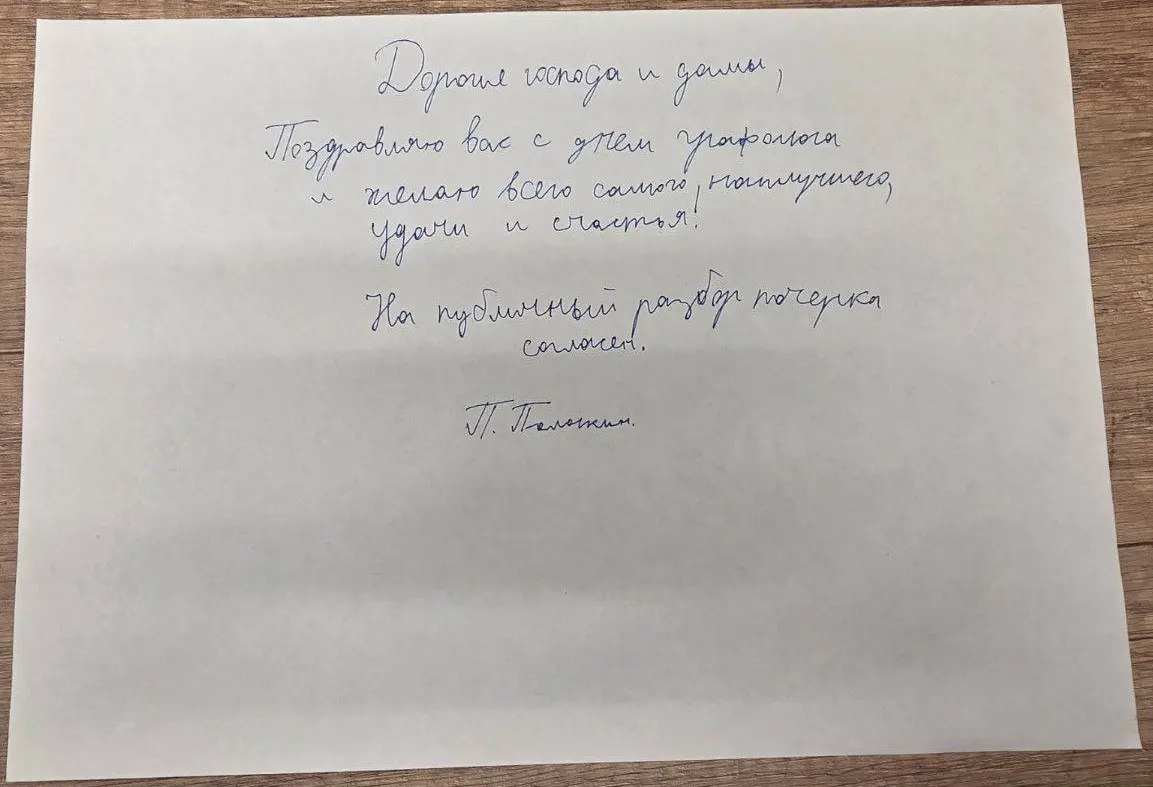 Дорогие господа и дамы,
Поздравляю вас с днем графолога
и желаю всего самого, наилучшего,
удачи и счастья!
На публичный разбор почерка
согласен.
П.